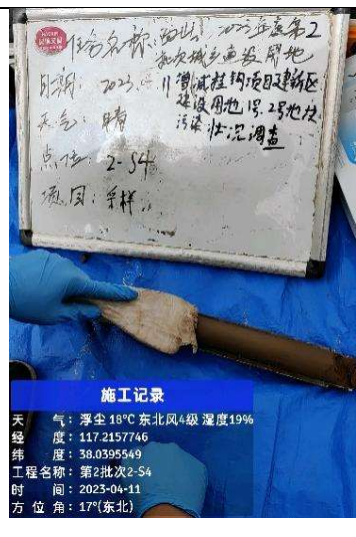 任务名称: 2023年度第2
批次城乡建设用地
增减挂钩项目建新区
建设用地1号、2号地块
污染状况调查
日期: 2023.
天气: 晴
点位: 2-S4
项目: 采样
施工记录
天 气: 浮尘 18℃ 东北风4级 湿度19%
经 度: 117.2157746
纬 度: 38.0395549
工程名称: 第2批次2-S4
时 间: 2023-04-11
方 位 角: 17°(东北)